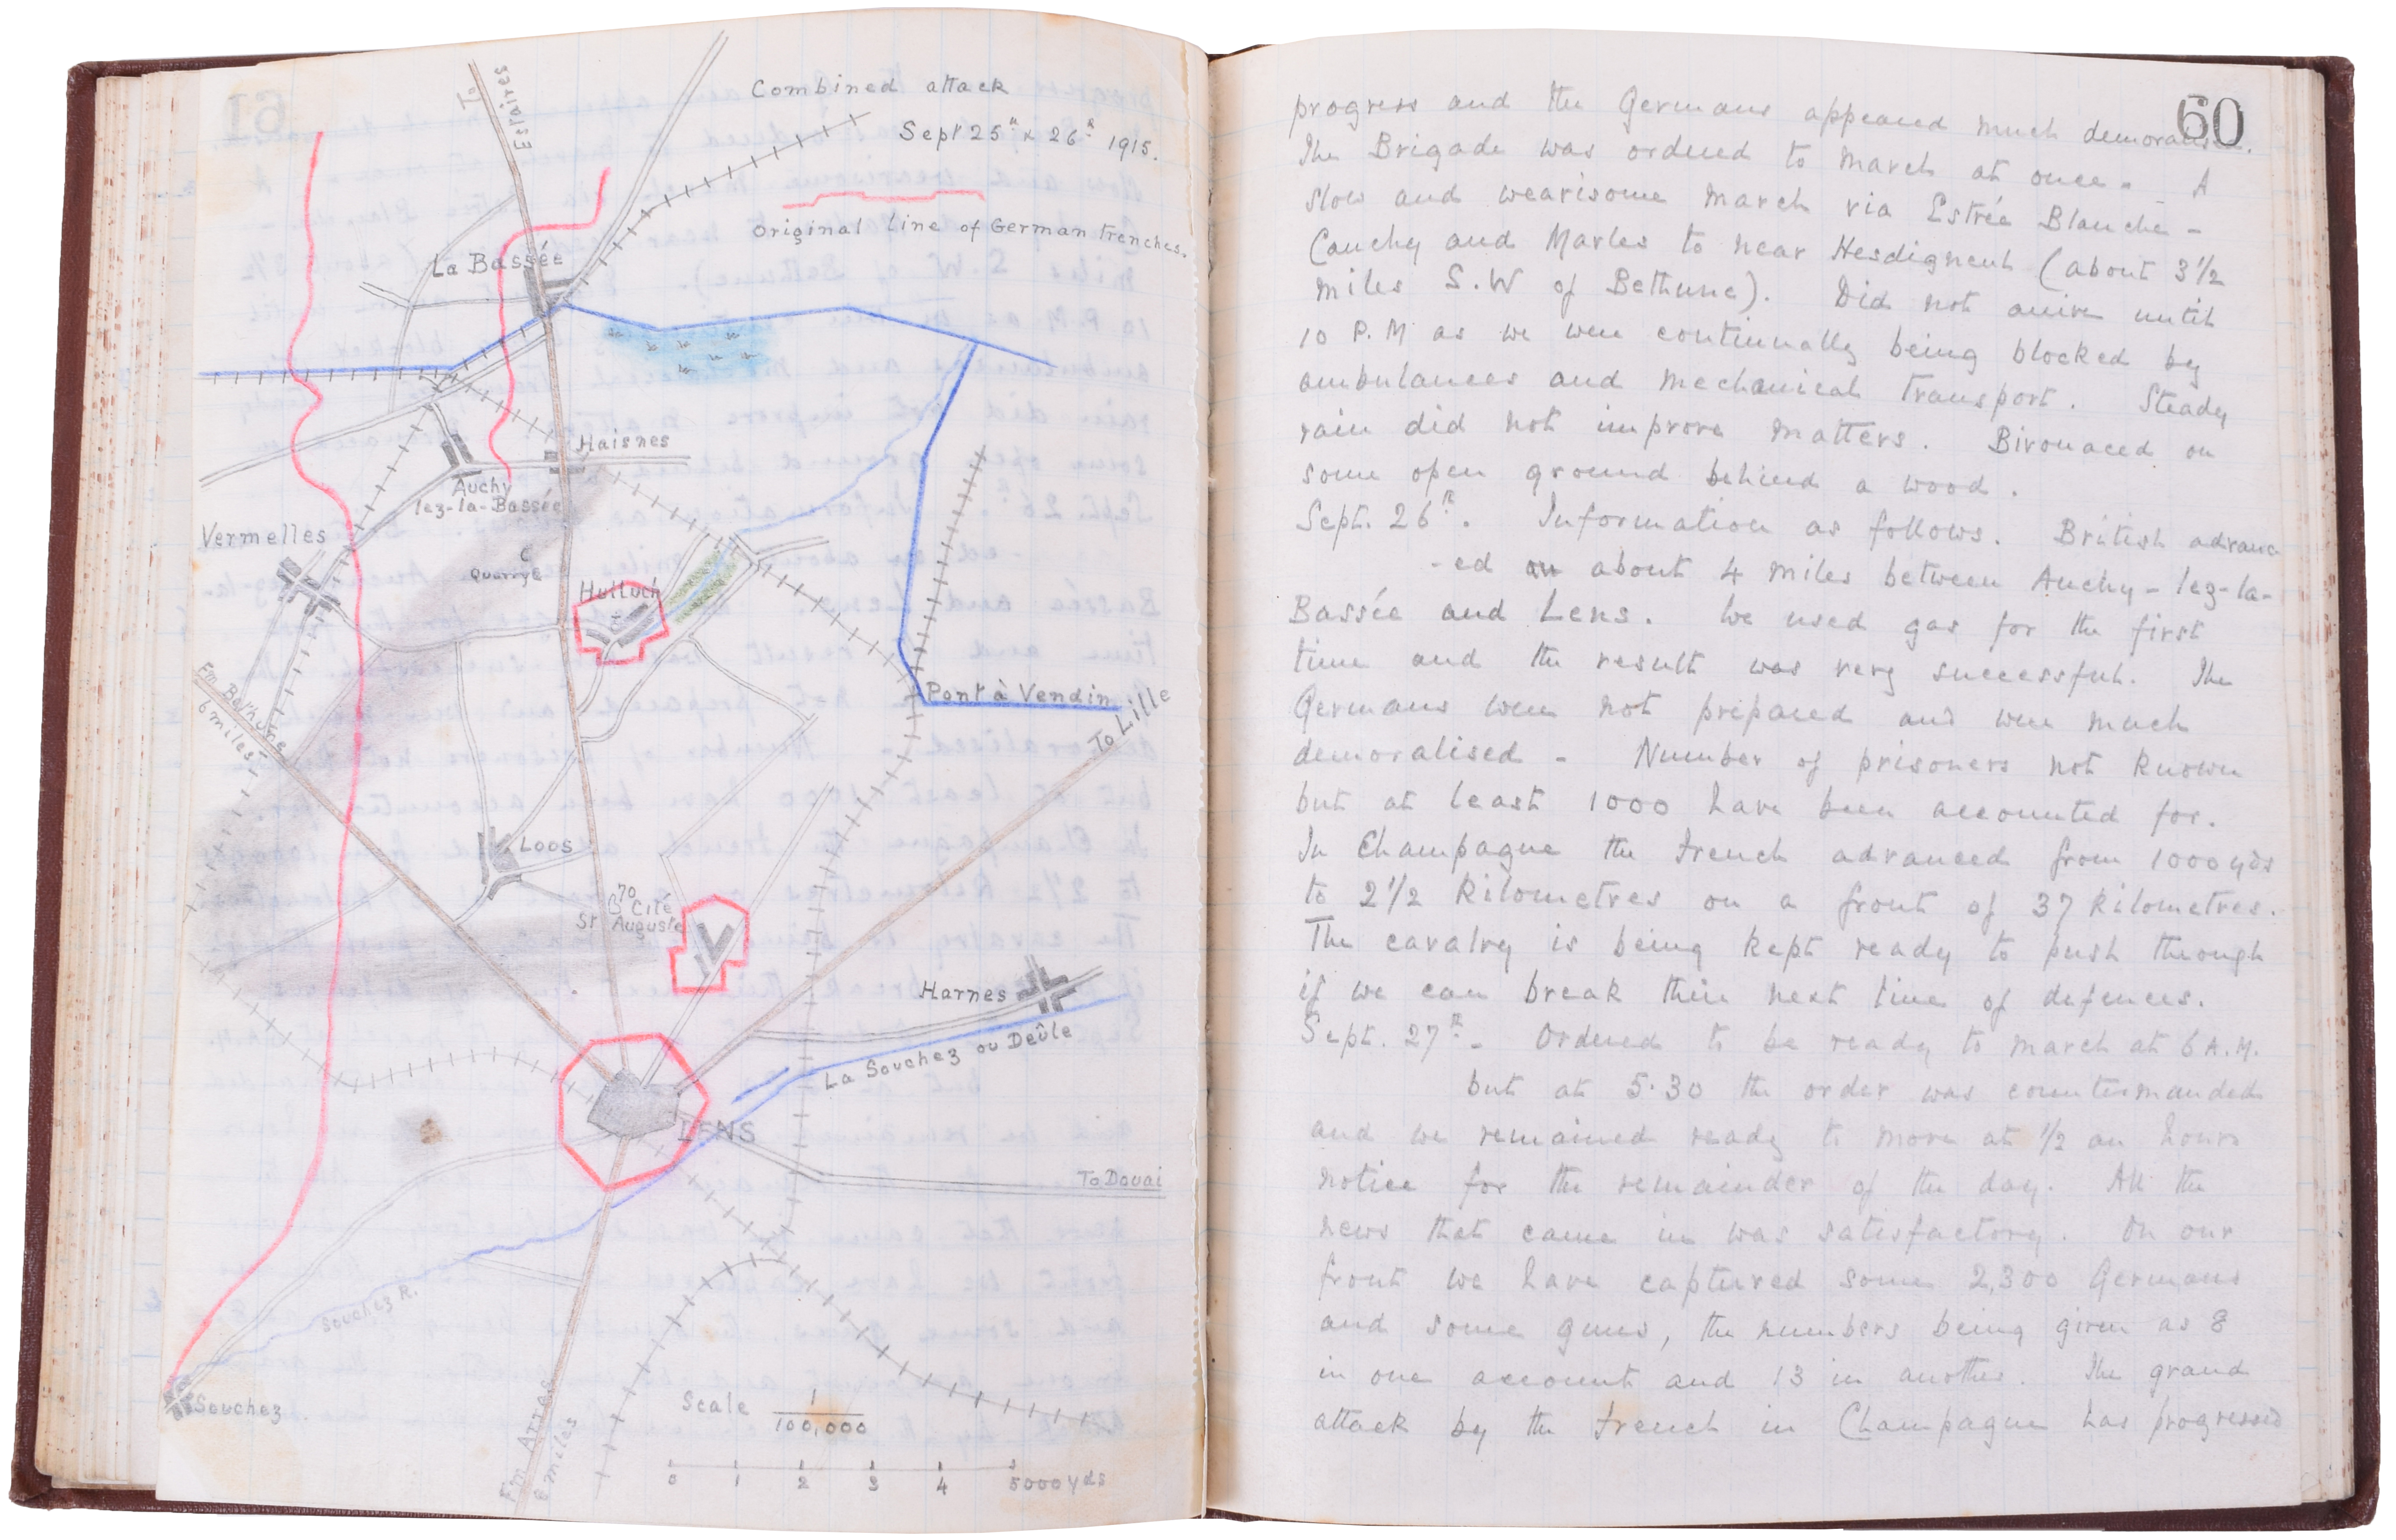 To Estaires
Combined attack
Sept 25th & 26th 1915.
Original line of German trenches.
La Bassée
Haisnes
Auchy
lez-la-Bassée
Vermelles
Quarry
Hulluch
Fm Bethune
6 miles
Pont à Vendin
To Lille
Loos
70
Cité
St Auguste
Harnes
La Souchez ou Deûle
LENS
To Douai
Souchez R.
Souchez
Fm Arras
8 miles
Scale 1/100,000
0 1 2 3 4 5000 yds
61
60
progress and the Germans appeared much demoralised.
The Brigade was ordered to march at once. A
slow and wearisome march via Estrée Blanche -
Cauchy and Marles to near Hesdigneul (about 3 1/2
miles S.W of Bethune). Did not arrive until
10 P.M as we were continually being blocked by
ambulances and mechanical transport. Steady
rain did not improve matters. Bivouaced on
some open ground behind a wood.
Sept. 26th. Information as follows. British advanc
-ed about 4 miles between Auchy-lez-la-
Bassée and Lens. We used gas for the first
time and the result was very successful. The
Germans were not prepared and were much
demoralised - Number of prisoners not known
but at least 1000 have been accounted for.
In Champagne the French advanced from 1000 yds
to 2 1/2 kilometres on a front of 37 kilometres.
The cavalry is being kept ready to push through
if we can break their next line of defences.
Sept. 27th - Ordered to be ready to march at 6 A.M.
but at 5.30 the order was countermanded
and we remained ready to move at 1/2 an hours
notice for the remainder of the day. All the
news that came in was satisfactory. On our
front we have captured some 2,300 Germans
and some guns, the numbers being given as 8
in one account and 13 in another. The grand
attack by the French in Champagne has progressed